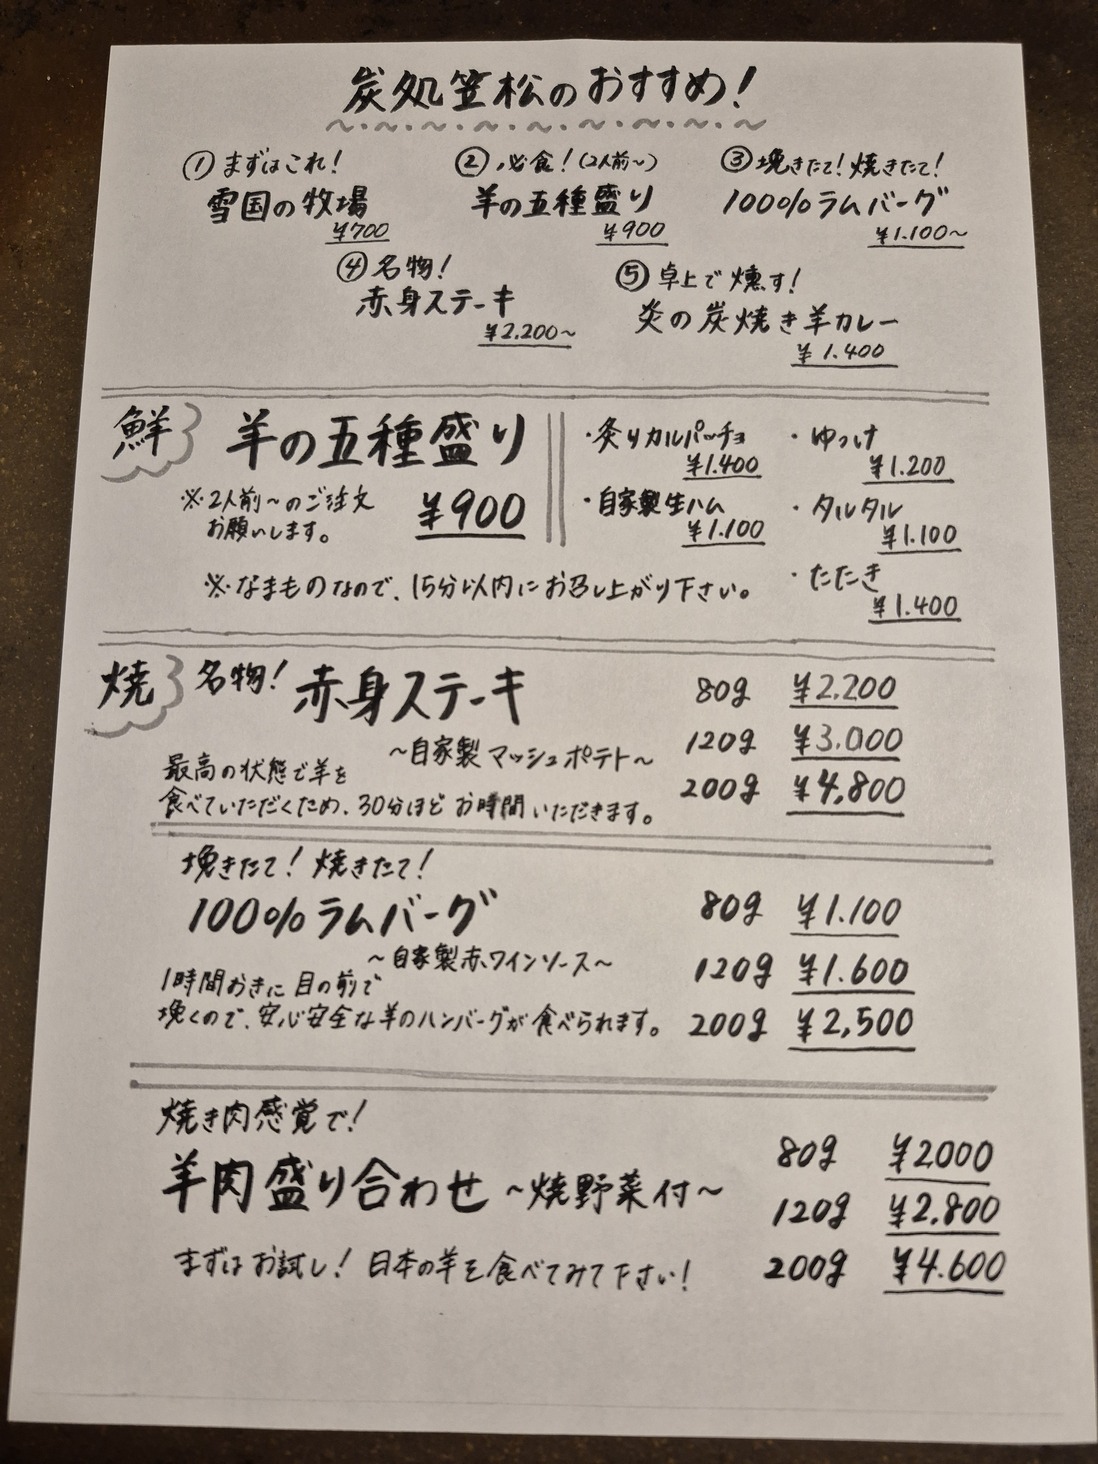 炭処笠松のおすすめ!
① まずはこれ!
雪国の牧場
¥700
② 必食!(2人前〜)
羊の五種盛り
¥900
③ 挽きたて!焼きたて!
100%ラムバーグ
¥1.100〜
④ 名物!
赤身ステーキ
¥2.200〜
⑤ 卓上で燻す!
炎の炭焼き羊カレー
¥1.400
鮮
羊の五種盛り
※2人前〜のご注文
お願いします。
¥900
・炙りカルパッチョ
¥1.400
・自家製生ハム
¥1.100
・ゆっけ
¥1.200
・タルタル
¥1.100
・たたき
¥1.400
※なまものなので、15分以内にお召し上がり下さい。
焼
名物! 赤身ステーキ
〜自家製マッシュポテト〜
最高の状態で羊を
食べていただくため、30分ほどお時間いただきます。
80g ¥2.200
120g ¥3.000
200g ¥4,800
挽きたて!焼きたて!
100%ラムバーグ
〜自家製赤ワインソース〜
1時間おきに目の前で
挽くので、安心安全な羊のハンバーグが食べられます。
80g ¥1.100
120g ¥1.600
200g ¥2,500
焼き肉感覚で!
羊肉盛り合わせ 〜焼野菜付〜
まずはお試し! 日本の羊を食べてみて下さい!
80g ¥2000
120g ¥2.800
200g ¥4.600